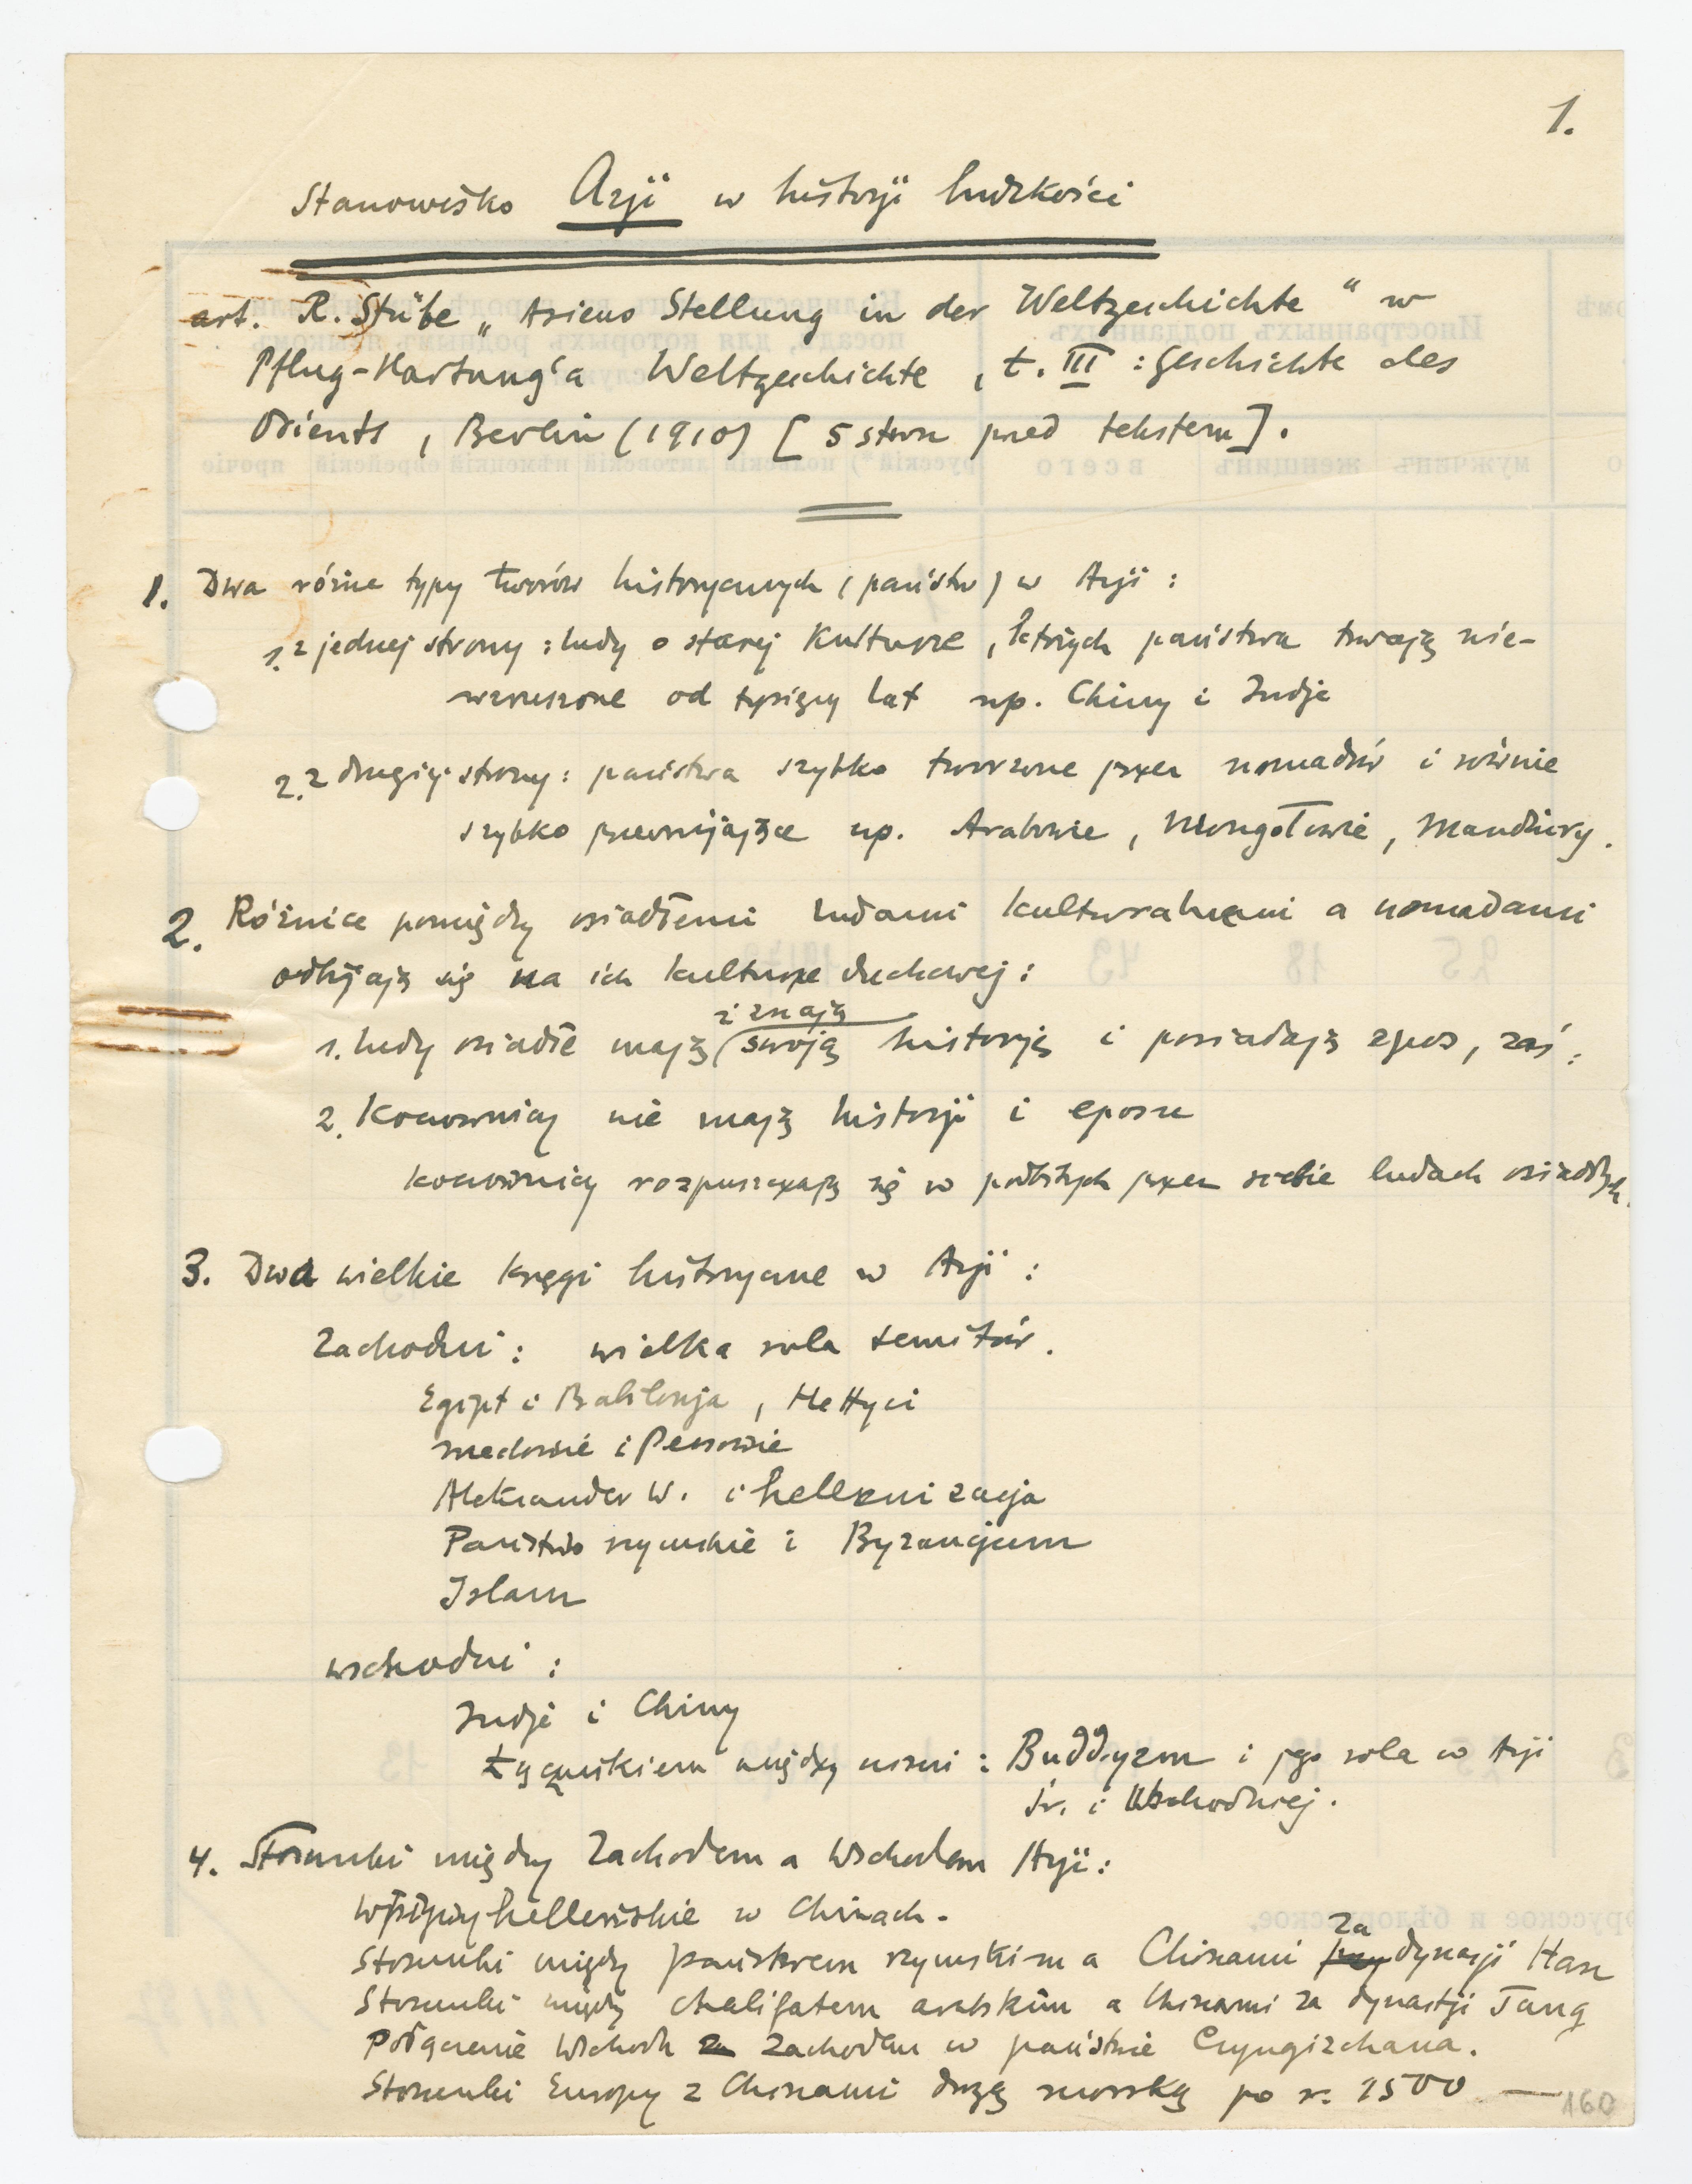 1.
Stanowisko Azji w historji ludzkości
art. R. Stübe „Asiens Stellung in der Weltgeschichte“ w
Pflug-Hartung'a Weltgeschichte, t. III: Geschichte des
Orients, Berlin (1910) [5 stron przed tekstem].
1. Dwa różne typy tworów historycznych (państw) w Azji:
1. z jednej strony: ludy o starej kulturze, których państwa trwają nie-
wzruszone od tysięcy lat np. Chiny i Indje
2. z drugiej strony: państwa szybko tworzone przez nomadów i równie
szybko przemijające np. Arabowie, Mongołowie, Mandżury.
2. Różnice pomiędzy osiadłemi ludami kulturalnemi a nomadami
odbijają się na ich kulturze duchowej:
i znają
1. ludy osiadłe mają swoją historję i posiadają epos, zaś:
2. Koczownicy nie mają historji i eposu
koczownicy rozpuszczają się w podbitych przez siebie ludach osiadłych.
3. Dwa wielkie kręgi historyczne w Azji:
Zachodni: wielka rola semitów.
Egipt i Babilonja, Hettyci
Medowie i Persowie
Aleksander W. i hellenizacja
Państwo rzymskie i Byzancjum
Islam
wschodni:
Indje i Chiny
Łącznikiem między niemi: Buddyzm i jego rola w Azji
śr. i Wschodniej.
4. Stosunki między Zachodem a Wschodem Azji:
Wpływy helleńskie w Chinach.
za
Stosunki między państwem rzymskim a Chinami przy dynastji Han
Stosunki między chalifatem arabskim a Chinami za dynastji Tang
Połączenie Wschodu z Zachodem w państwie Czyngizchana.
Stosunki Europy z Chinami drogą morską po r. 1500 —
160